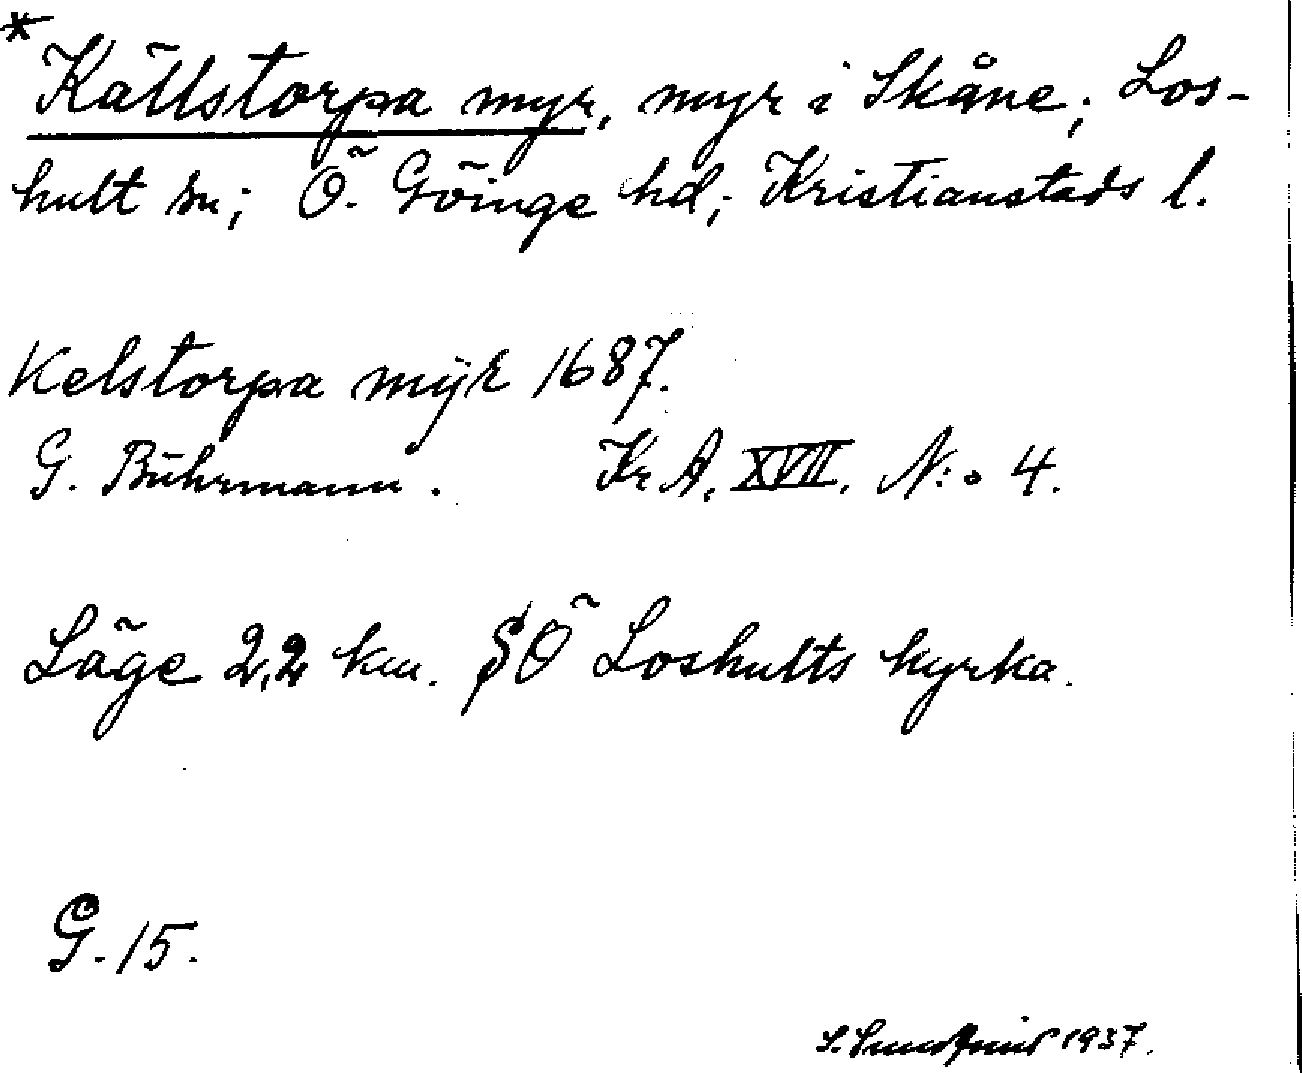 * Källstorpa myr, myr i Skåne; Los-
hult sn; Ö. Göinge hd; Kristianstads l.
Kelstorpa mÿr 1687.
G. Buhrmann. Kr A. XVII. N:o 4.
Läge 2,2 km. SÖ Loshults kyrka.
G. 15.
S. 1937.